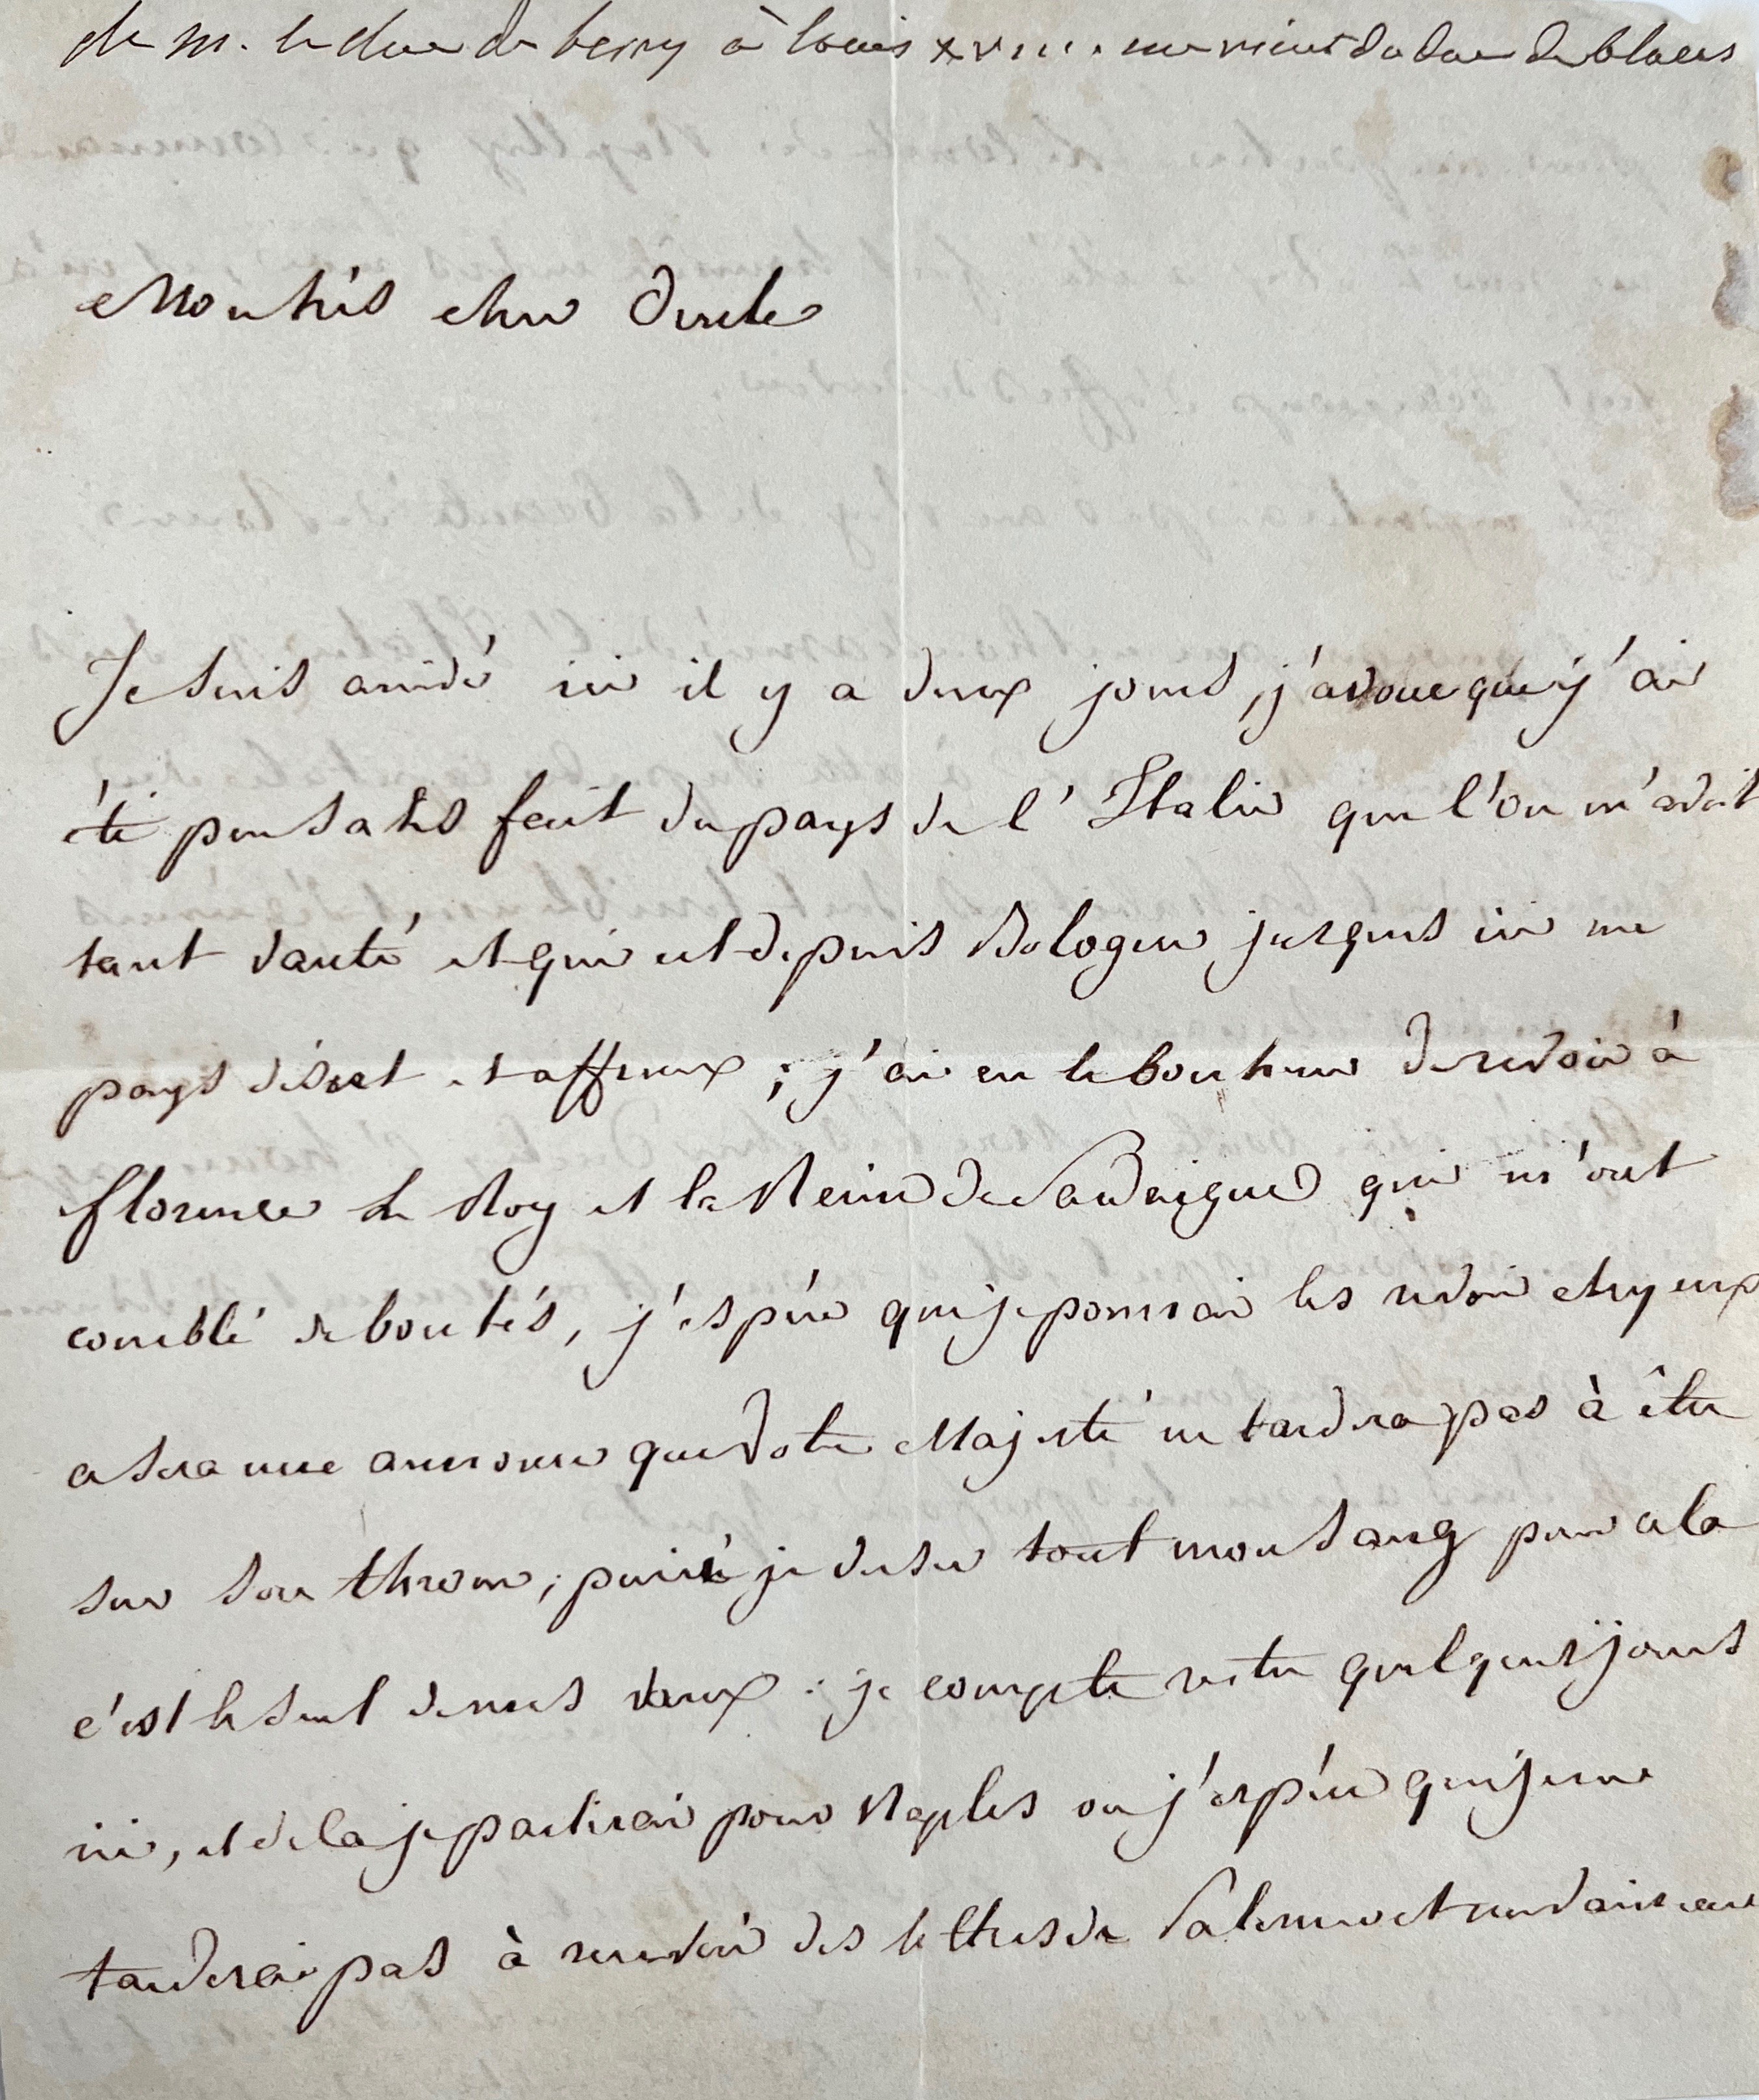 de m. le duc de berry à louis xviii. me vient du duc de blacas
Mon très cher Oncle
Je suis arrivé ici il y a deux jours, j'avoue que j'ai
été peu satis fait du pays de l'Italie que l'on m'avoit
tant vanté et qui est depuis Bologne jusques ici un
pays désert et affreux ; j'ai eu le bonheur de revoir à
florence le Roy et la Reine de Sardaigne qui m'ont
comblé de bontés, j'espère que je pourrai les revoir chez eux
ce sera une annonce que Votre Majesté ne tardera pas à être
sur son throne ; puissé je verser tout mon sang pour cela
c'est le seul de mes vœux : je compte rester quelques jours
ici, et de la je partirai pour Naples ou j'espère que je ne
tarderai pas à recevoir des lettres de Palerme et un vaisseau